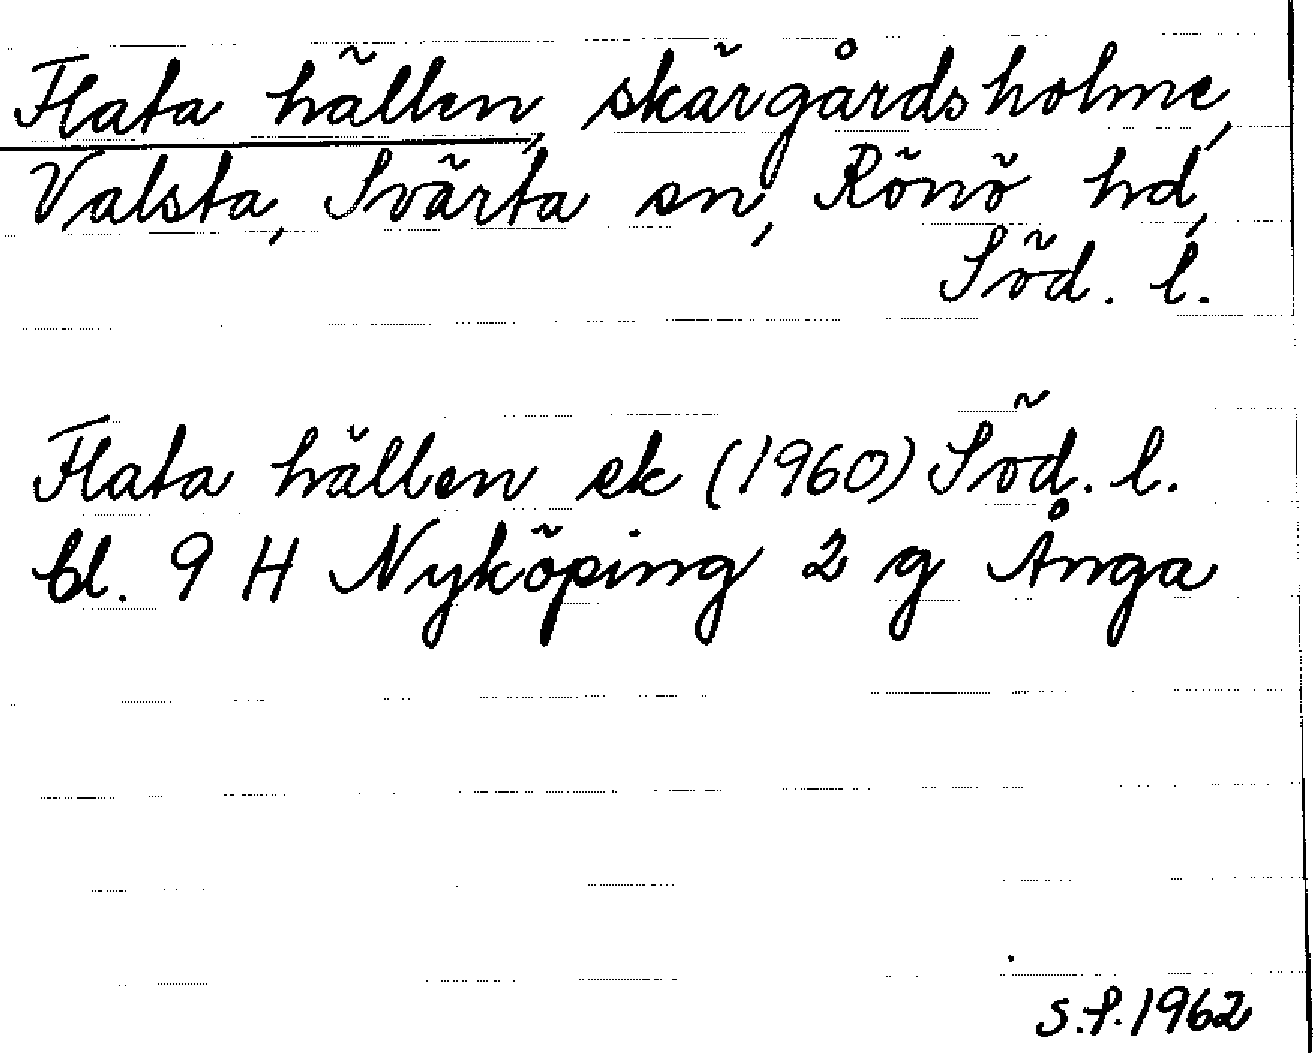 Flata hällen, skärgårdsholme,
Valsta, Svärta sn, Rönö hd,
Söd. l.
Flata hällen ek (1960) Söd. l.
bl. 9 H Nyköping 2 g Ånga
S.P. 1962